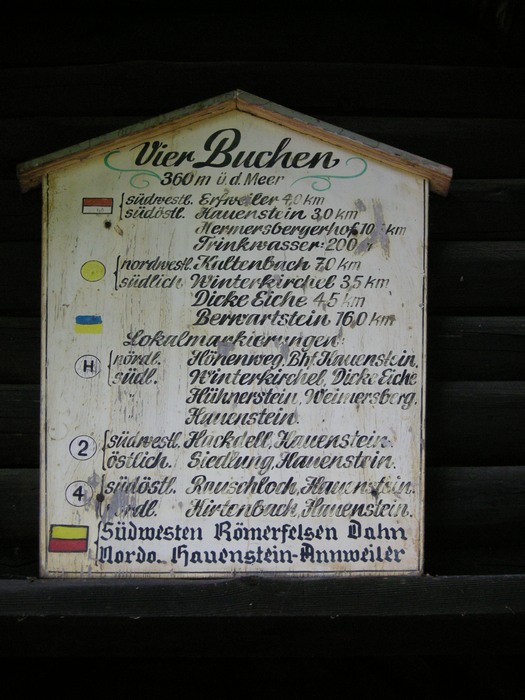 Vier Buchen
360 m ü. d. Meer
südwestl. Erfweiler 4,0 km
südöstl. Hauenstein 3,0 km
Hermersbergerhof 10, km
Trinkwasser 200
nordwestl. Kaltenbach 7,0 km
südlich Winterkirchel 3,5 km
Dicke Eiche 4,5 km
Berwartstein 16,0 km
Lokalmarkierungen:
H nördl. Höhenweg, Bhf. Hauenstein,
südl. Winterkirchel, Dicke Eiche
Hühnerstein, Weimersberg,
Hauenstein.
2 südwestl. Hackdell, Hauenstein.
östlich. Siedlung, Hauenstein.
4 südöstl. Rauschloch, Hauenstein.
nördl. Hirtenbach, Hauenstein.
Südwesten Römerfelsen Dahn
Nordo. Hauenstein-Annweiler